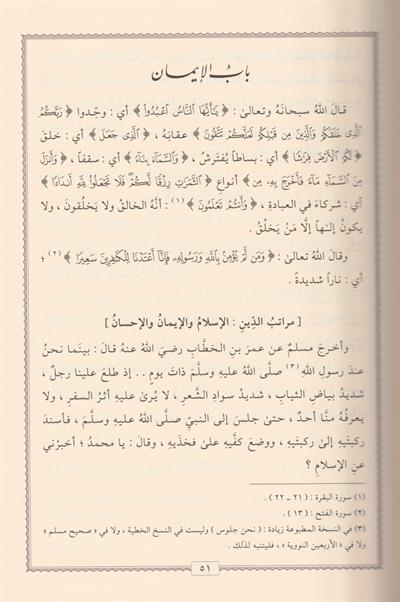 بابُ الإيمان
قالَ اللهُ سبحانَهُ وتعالىٰ : ﴿ يَٰٓأَيُّهَا النَّاسُ اعْبُدُوا ﴾ أي : وحِّدوا ﴿ رَبَّكُمُ
الَّذِى خَلَقَكُمْ وَالَّذِينَ مِن قَبْلِكُمْ لَعَلَّكُمْ تَتَّقُونَ ﴾ عقابَهُ ، ﴿ الَّذِى جَعَلَ ﴾ أي : خلقَ
﴿ لَكُمُ الْأَرْضَ فِرَٰشًا ﴾ أي : بساطاً يُفترَشُ ، ﴿ وَالسَّمَآءَ بِنَآءً ﴾ أي : سقفاً ، ﴿ وَأَنزَلَ
مِنَ السَّمَآءِ مَآءً فَأَخْرَجَ بِهِۦ مِنَ ﴾ أنواعِ ﴿ الثَّمَرَٰتِ رِزْقًا لَّكُمْ فَلَا تَجْعَلُوا لِلَّهِ أَندَادًا ﴾
أي : شركاءَ في العبادةِ ، ﴿ وَأَنتُمْ تَعْلَمُونَ ﴾(١) : أنَّهُ الخالقُ ولا يَخلُقونَ ، ولا
يكونُ إلٰهاً إلَّا مَنْ يَخلُقُ .
وقالَ اللهُ تعالىٰ : ﴿ وَمَن لَّمْ يُؤْمِنۢ بِاللَّهِ وَرَسُولِهِۦ فَإِنَّآ أَعْتَدْنَا لِلْكَٰفِرِينَ سَعِيرًا ﴾(٢) ؛
أي : ناراً شديدةً .
[ مراتبُ الدِّينِ : الإسلامُ والإيمانُ والإحسانُ ]
وأخرجَ مسلمٌ عن عمرَ بنِ الخطَّابِ رضيَ اللهُ عنهُ قالَ : بينَما نحنُ
عندَ رسولِ اللهِ(٣) صلَّى اللهُ عليهِ وسلَّمَ ذاتَ يومٍ .. إذ طلعَ علينا رجلٌ ،
شديدُ بياضِ الثيابِ ، شديدُ سوادِ الشَّعرِ ، لا يُرىٰ عليهِ أثرُ السفرِ ، ولا
يعرفُهُ منَّا أحدٌ ، حتىٰ جلسَ إلى النبيِّ صلَّى اللهُ عليهِ وسلَّمَ ، فأسندَ
ركبتَيهِ إلىٰ ركبتَيهِ ، ووضعَ كفَّيهِ علىٰ فخذَيهِ ، وقالَ : يا محمدُ ؛ أخبِرْني
عنِ الإسلامِ ؟
(١) سورة البقرة : ( ٢١ ـ ٢٢ ) .
(٢) سورة الفتح : ( ١٣ ) .
(٣) في النسخة المطبوعة زيادة : ( نحن جلوس ) وليست في النسخ الخطية ، ولا في « صحيح مسلم »
ولا في « الأربعين النووية » ، فليتنبه لذلك .
٥١